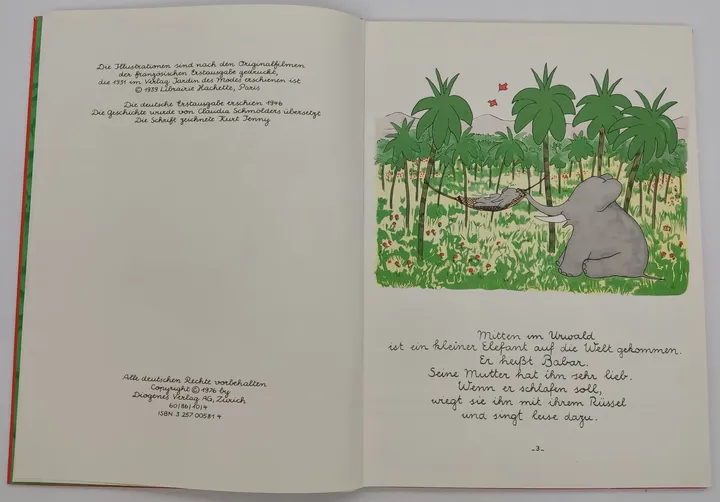 Die Illustrationen sind nach den Originalfilmen
der französischen Erstausgabe gedruckt,
die 1931 im Verlag Jardin des Modes erschienen ist
© 1939 Librairie Hachette, Paris
Die deutsche Erstausgabe erschien 1946
Die Geschichte wurde von Claudia Schmölders übersetzt
Die Schrift zeichnete Kurt Jenny
Alle deutschen Rechte vorbehalten
Copyright © 1976 by
Diogenes Verlag AG, Zürich
60/86/10/4
ISBN 3 257 00581 4
Mitten im Urwald
ist ein kleiner Elefant auf die Welt gekommen.
Er heißt Babar.
Seine Mutter hat ihn sehr lieb.
Wenn er schlafen soll,
wiegt sie ihn mit ihrem Rüssel
und singt leise dazu.
-3-